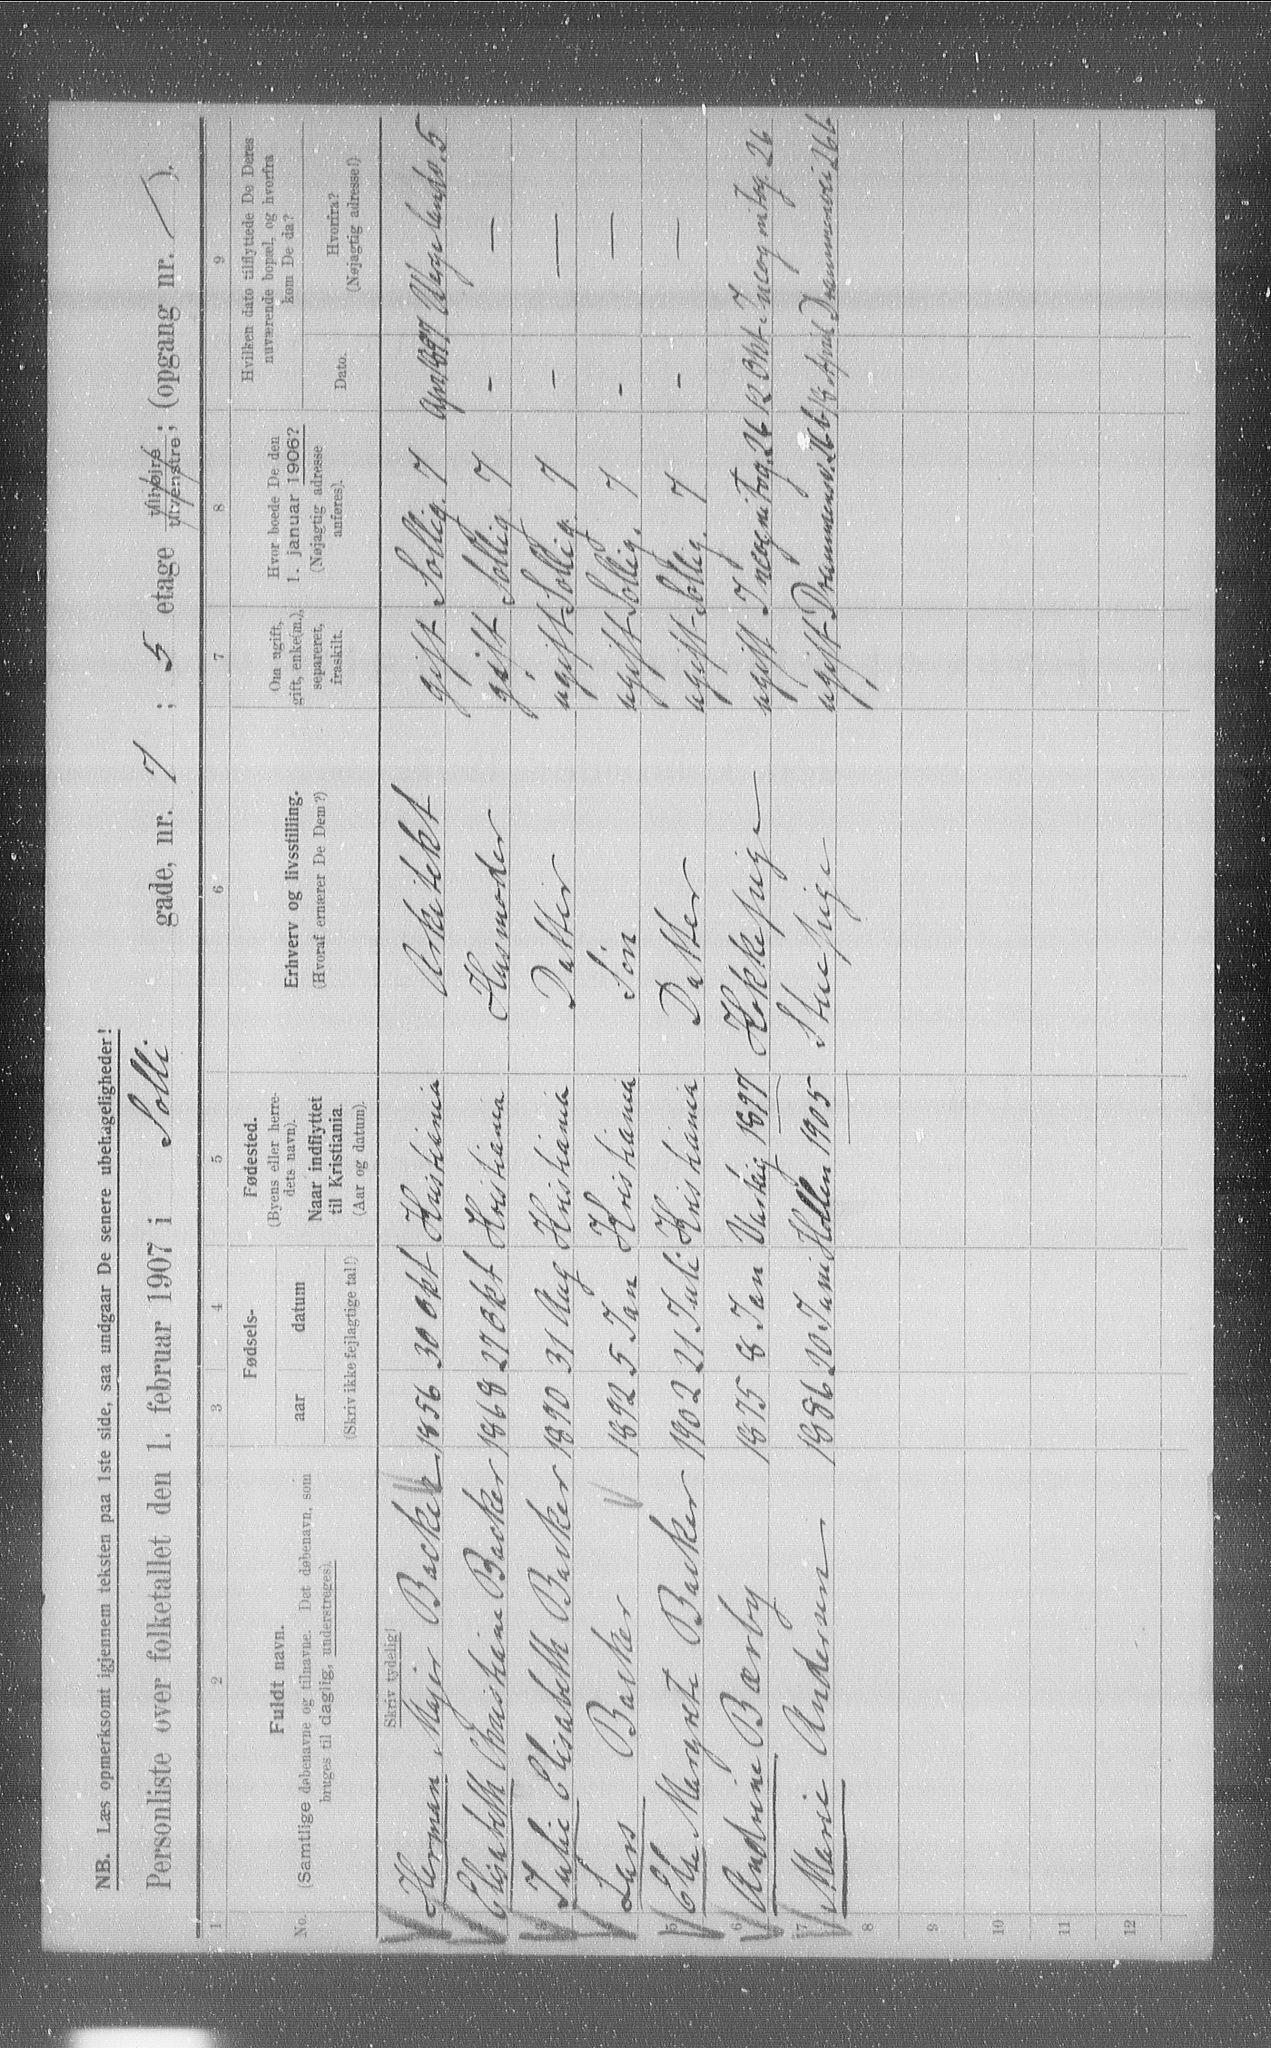 NB. Læs opmerksomt igjennem teksten paa 1ste side, saa undgaar De senere ubehageligheder!
Personliste over folketallet den 1. februar 1907 i Solli gade, nr. 7 ; 5 etage tilhøjre tilvenstre ; (opgang nr. ).
1 2 3 4 5 6 7 8 9
No. Fuldt navn. (Samtlige døbenavne og tilnavne. Det døbenavn, som bruges til daglig, understreges).
Fødsels- aar datum (Skriv ikke fejlagtige tal!)
Fødested. (Byens eller herredets navn). Naar indflyttet til Kristiania. (Aar og datum).
Erhverv og livsstilling. (Hvoraf ernærer De Dem?)
Om ugift, gift, enke(m.), separeret, fraskilt.
Hvor boede De den 1. januar 1906? (Nøjagtig adresse anføres).
Hvilken dato tilflyttede De Deres nuværende bopæl, og hvorfra kom De da?
Dato. Hvorfra? (Nøjagtig adresse!)
Skriv tydelig!
Herman Major Backer 1856 30 Okt Kristiania Arkitekt gift Sollig. 7 April 1897 Wergelandsv. 5
2 Elisabeth Christiane Backer 1868 27 Okt Kristiania Husmoder gift Sollig 7 - —
3 Julie Elisabeth Backer 1890 31 Aug Kristiania Datter ugift Sollig. 7 - —
Lars Backer 1892 5 Jan Kristiania Søn ugift Sollig. 7 - —
5 Margrete Backer 1902 21 Juli Kristiania Datter ugift Sollig. 7 - —
6 Andrine Bærby 1875 8 Jan 1897 Kokkepige ugift Incognitog. 26 12 Okt Incognitog. 26
7 Marie Andersen 1886 20 Juni Hollen 1905 Stuepige ugift Drammensv. 26b April Drammensvei 26b
8
9
10
11
12